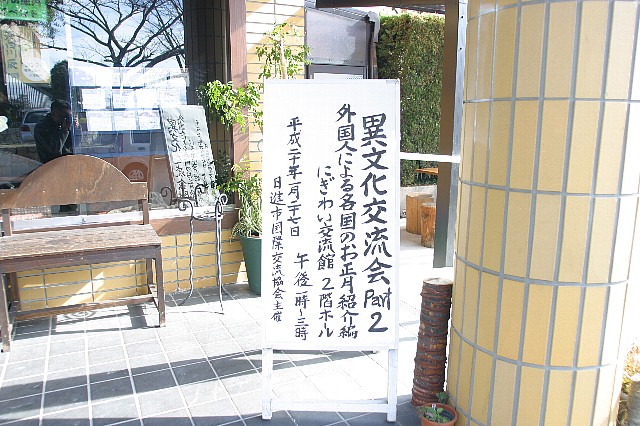 異文化交流会 Part 2
外国人による各国のお正月紹介編
にぎわい交流館 2階ホール
平成二十年一月二十七日 午後一時〜三時
日進市国際交流協会主催